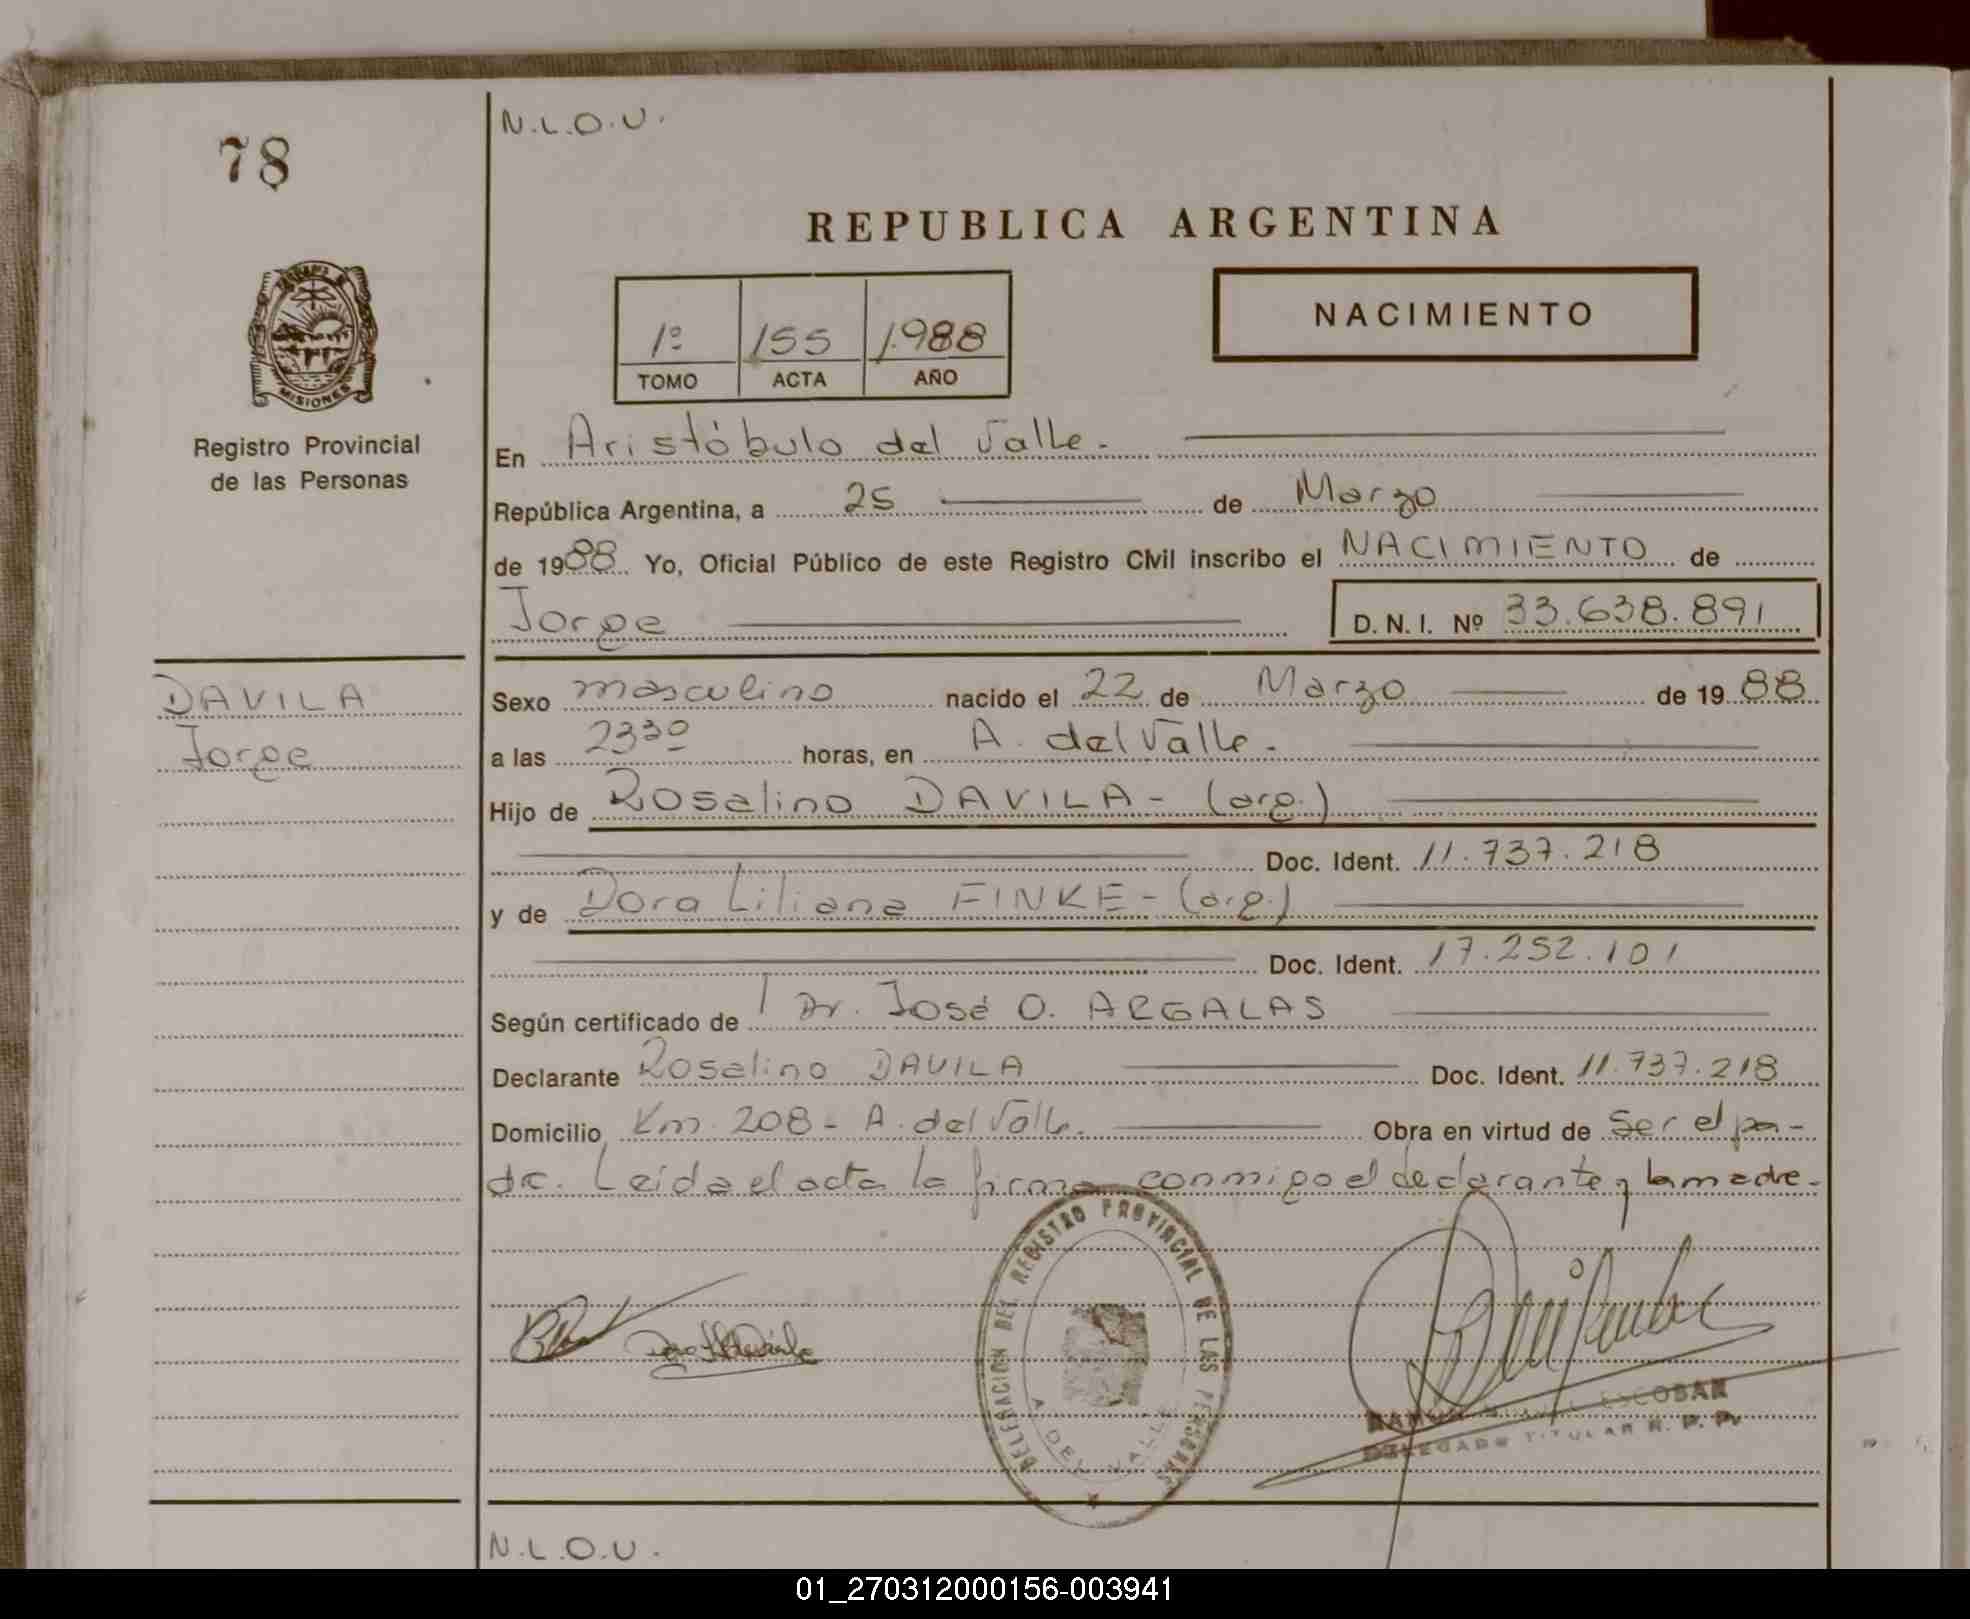 78
N.L.O.U.
REPUBLICA ARGENTINA
MISIONES
1º 155 1.988
TOMO ACTA AÑO
NACIMIENTO
Registro Provincial
de las Personas
En Aristóbulo del Valle.
República Argentina, a 25 de Marzo
de 1988 Yo, Oficial Público de este Registro Civil inscribo el NACIMIENTO de
Jorge D.N.I. Nº 33.638.891
DAVILA
Jorge
Sexo masculino nacido el 22 de Marzo de 1988
a las 23³⁰ horas, en A. del Valle.
Hijo de Rosalino DAVILA - (arg.)
Doc. Ident. 11.737.218
y de Dora Liliana FINKE - (arg.)
Doc. Ident. 17.252.101
Según certificado de Dr. José O. ARGALAS
Declarante Rosalino DAVILA Doc. Ident. 11.737.218
Domicilio Km. 208 - A. del Valle. Obra en virtud de ser el pa-
dre. Leída el acta la firma conmigo el declarante y la madre.
DELEGACION DEL REGISTRO PROVINCIAL DE LAS PERSONAS
A. DEL VALLE
ESCOBAR
DELEGADO TITULAR R. P. P.
N.L.O.U.
01_270312000156-003941